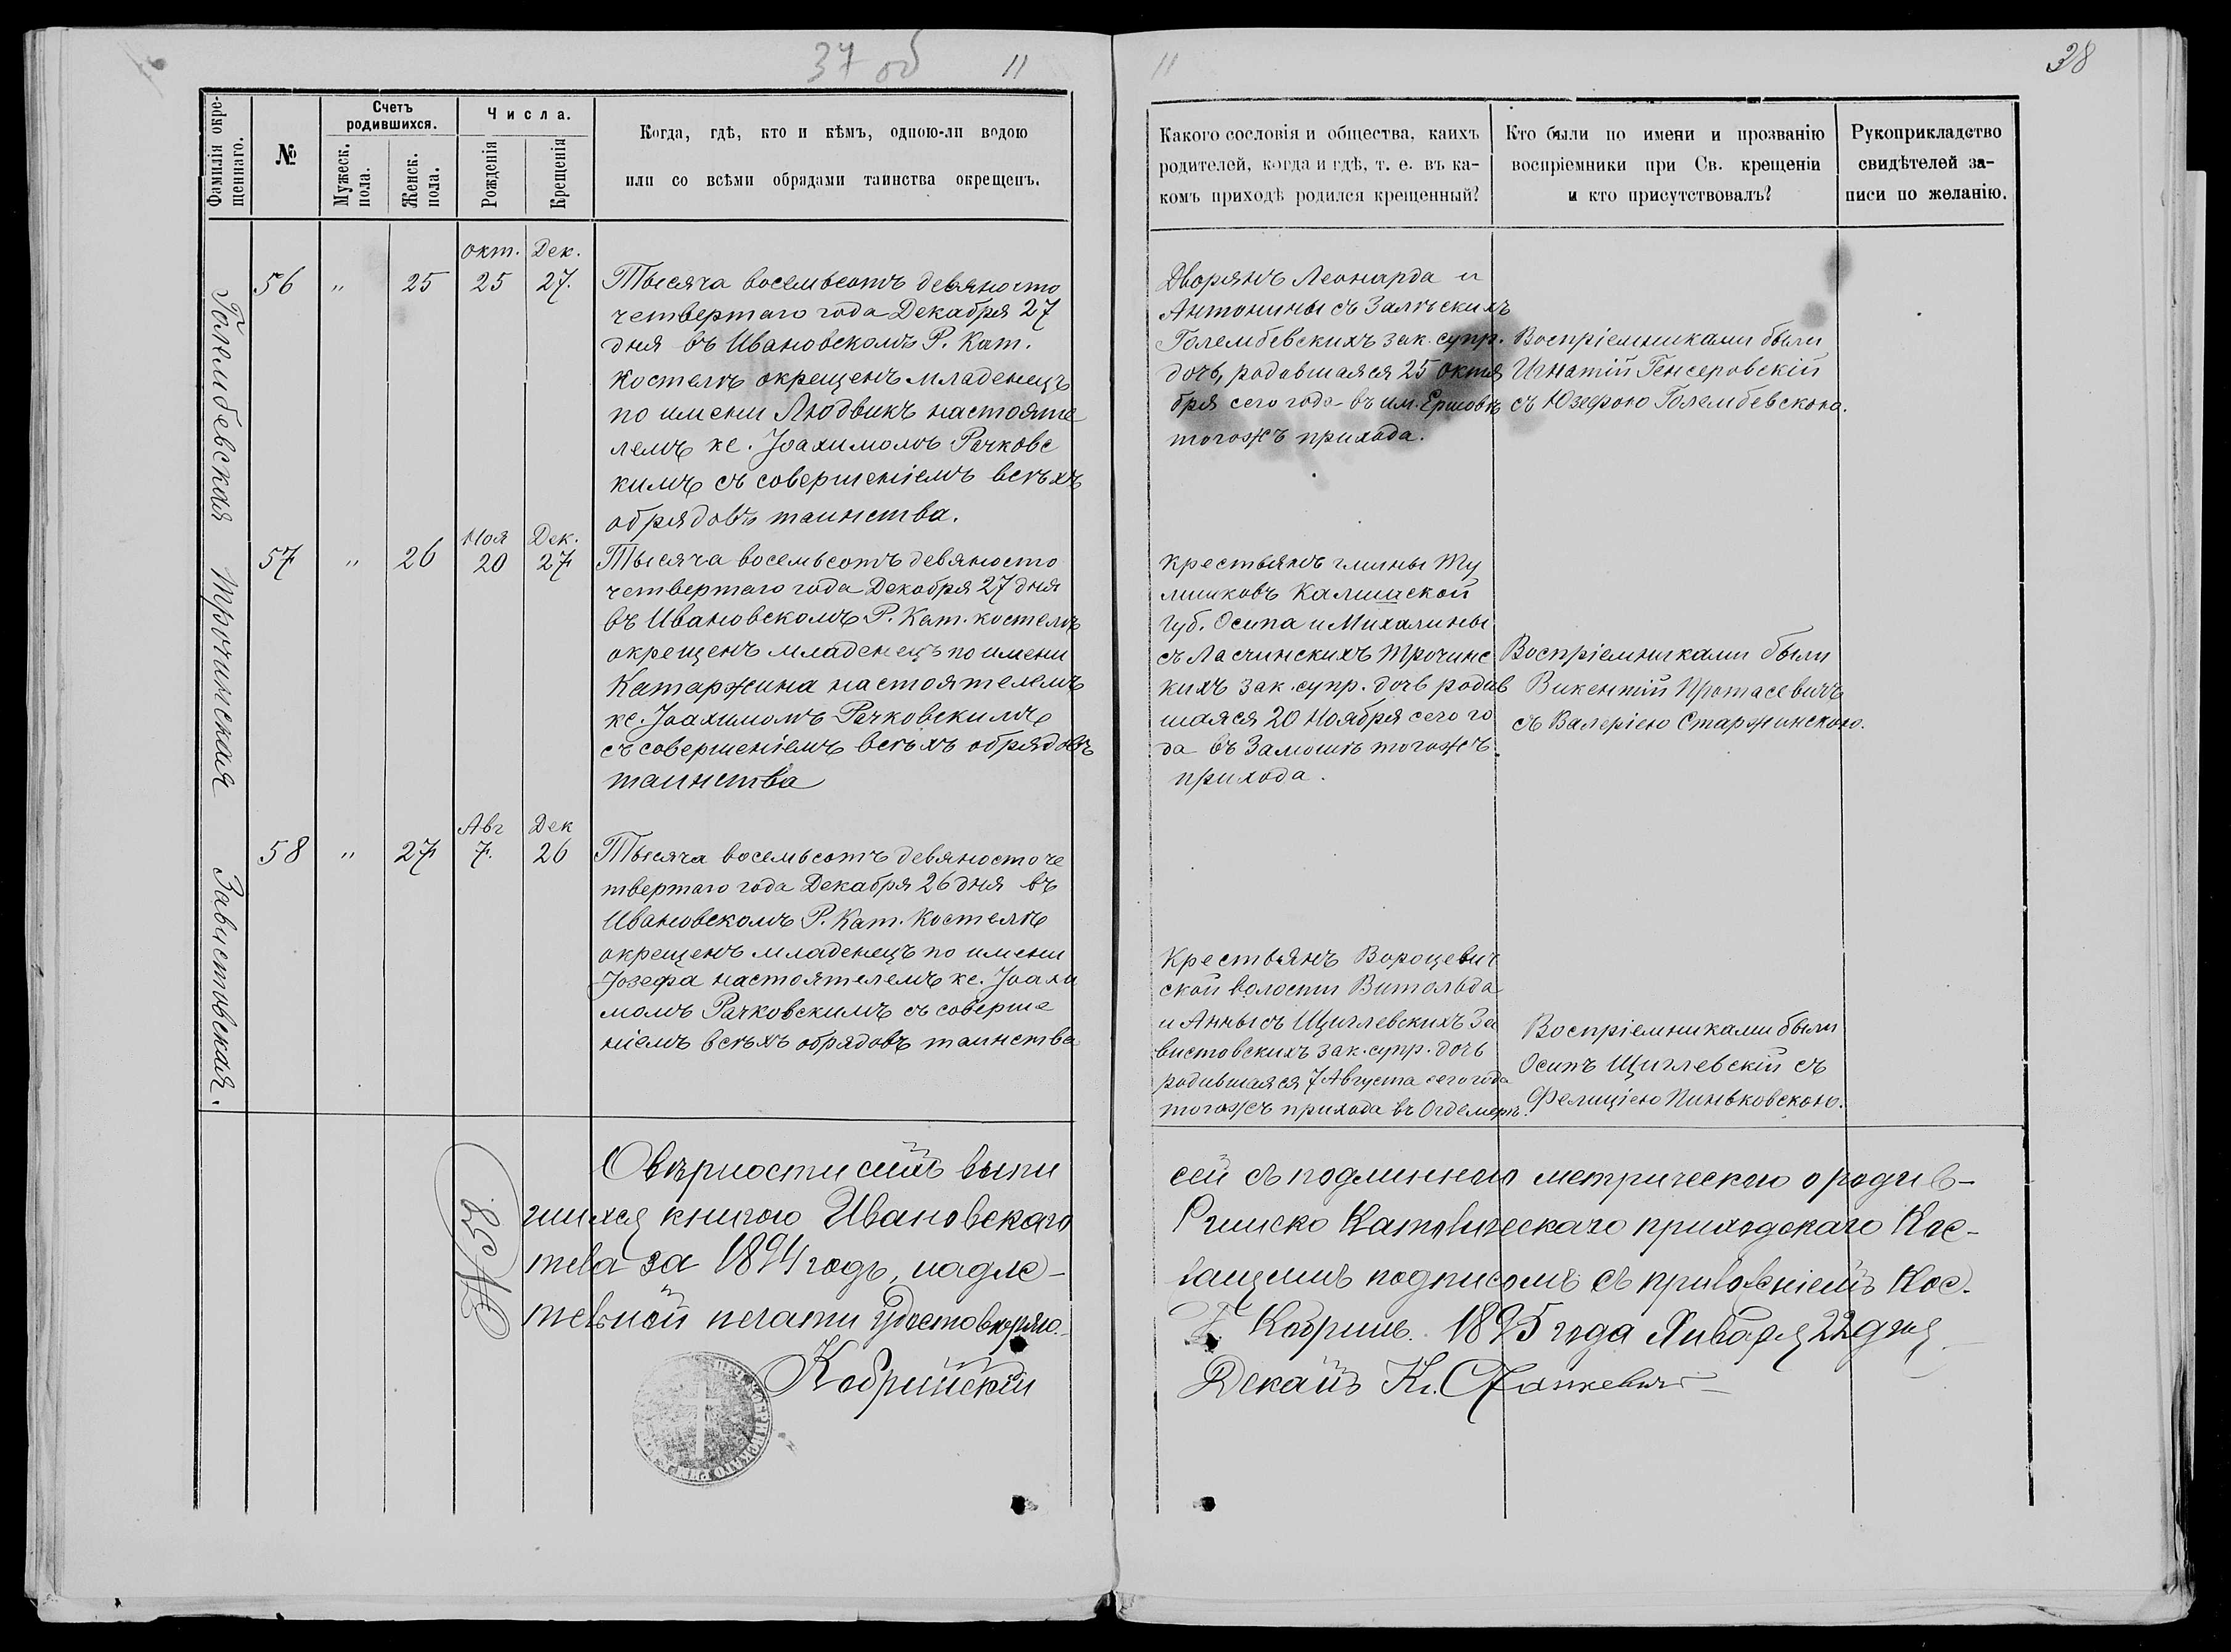 37 об
11
Фамилія окре-
щеннаго.
№
Счетъ
родившихся.
Мужеск.
пола.
Женск.
пола.
Числа.
Рожденія
Крещенія
Когда, гдѣ, кто и кѣмъ, одною-ли водою
или со всѣми обрядами таинства окрещенъ.
Голембевская
56
"
25
Окт.
25
Дек.
27.
Тысяча восемьсотъ девяносто
четвертаго года Декабря 27
дня въ Ивановскомъ Р. Кат.
костелѣ окрещенъ младенецъ
по имени Людвикъ настояте
лемъ кс. Іоахимомъ Рачковс
кимъ съ совершеніемъ всѣхъ
обрядовъ таинства.
Трочинская
57
"
26
Ноя
20
Дек.
27
Тысяча восемьсотъ девяносто
четвертаго года Декабря 27 дня
въ Ивановскомъ Р. Кат. костелѣ
окрещенъ младенецъ по имени
Катаржина настоятелемъ
кс. Іоахимомъ Рачковскимъ
съ совершеніемъ всѣхъ обрядовъ
таинства
Завистовская.
58
"
27
Авг
7.
Дек
26
Тысяча восемьсотъ девяносто че
твертаго года Декабря 26 дня въ
Ивановскомъ Р. Кат. Костелѣ
окрещенъ младенецъ по имени
Іозефа настоятелемъ кс. Іоахи
момъ Рачковскимъ съ соверше
ніемъ всѣхъ обрядовъ таинства
О вѣрности сихъ выпи
шихся книгою Ивановскаго
тела за 1894 годъ, надле-
тельной печати удостовѣряю.
Кобринскій
11
38
Какого сословія и общества, каихъ
родителей, когда и гдѣ, т. е. въ ка-
комъ приходѣ родился крещенный?
Кто были по имени и прозванію
воспріемники при Св. крещеніи
и кто присутствовалъ?
Рукоприкладство
свидѣтелей за-
писи по желанію.
Дворянъ Леонарда и
Антонины съ Залѣскихъ
Голембевскихъ зак. супр.
дочь, родившаяся 25 Октя
бря сего года въ им. Ершовѣ
тогожъ прихода.
Воспріемниками были
Игнатій Генсеровскій
съ Юзефою Голембевскою.
Крестьянъ гмины Ту
лишковъ Калишской
Губ. Осипа и Михалины
съ Ласчинскихъ Трочинс
кихъ зак. супр. дочь родив
шаяся 20 Ноября сего го
да въ Замошьѣ тогожъ
прихода.
Воспріемниками были
Викентій Протасевичъ
съ Валеріею Старжинскою.
Крестьянъ Вороцевич
ской волости Витольда
и Анны съ Щиглевскихъ За
вистовскихъ зак. супр. дочь
родившаяся 7 Августа сего года
тогожъ прихода въ Огдемерѣ.
Воспріемниками были
Осипъ Щиглевскій съ
Фелиціею Пиньковскою.
сей съ подлинною метрическою о родив-
Римско Католическаго приходскаго Кос-
жащимъ подписомъ съ приложеніемъ Кос-
Г. Кобринъ. 1895 года Января 22 дня
Деканъ Кс. Станкевичъ